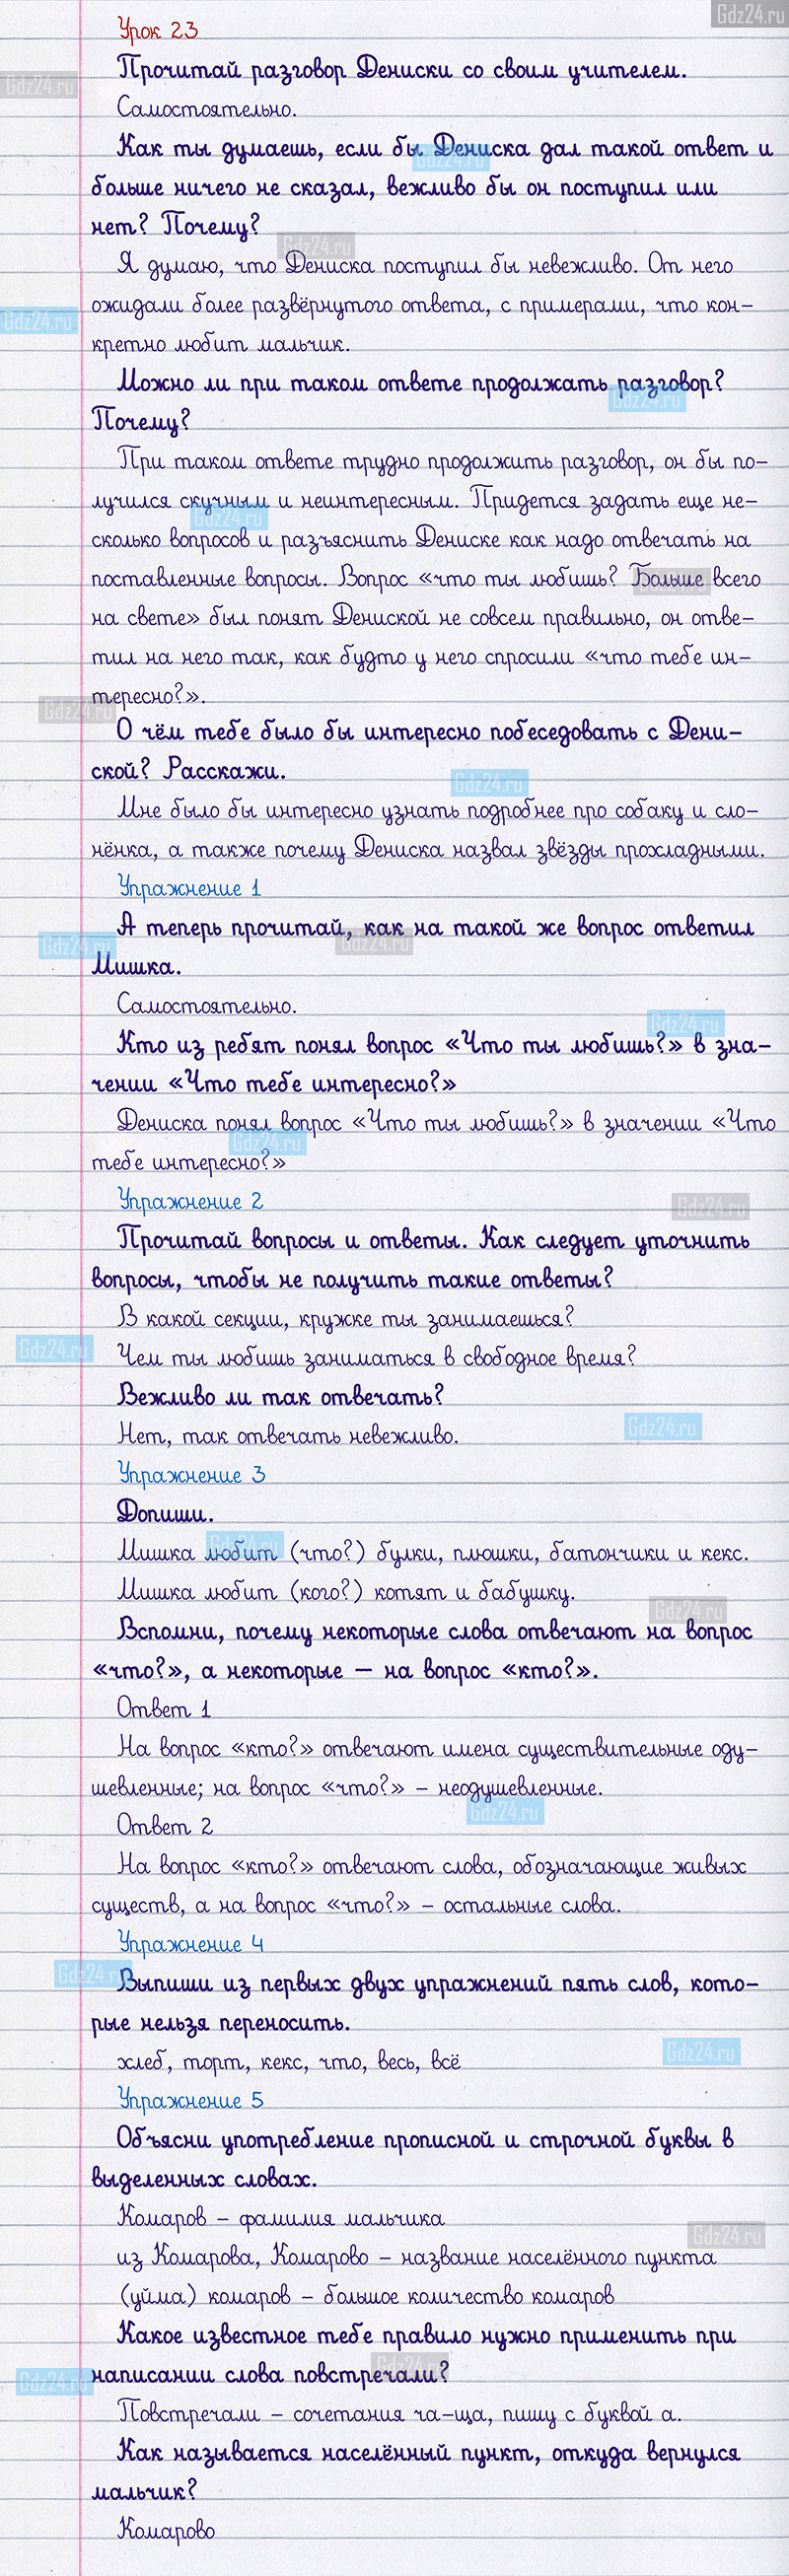 Gdz24.ru
Урок 23
Прочитай разговор Дениски со своим учителем.
Gdz24.ru
Самостоятельно.
Как ты думаешь, если бы Дениска дал такой ответ и
Gdz24.ru
больше ничего не сказал, вежливо бы он поступил или
нет? Почему?
Gdz24.ru
Я думаю, что Дениска поступил бы невежливо. От него
ожидали более развёрнутого ответа, с примерами, что кон-
Gdz24.ru
кретно любит мальчик.
Можно ли при таком ответе продолжать разговор?
Gdz24.ru
Почему?
При таком ответе трудно продолжить разговор, он бы по-
лучился скучным и неинтересным. Придется задать еще не-
Gdz24.ru
сколько вопросов и разъяснить Дениске как надо отвечать на
поставленные вопросы. Вопрос «что ты любишь? Больше всего
Gdz24.ru
на свете» был понят Дениской не совсем правильно, он отве-
тил на него так, как будто у него спросили «что тебе ин-
тересно?».
Gdz24.ru
О чём тебе было бы интересно побеседовать с Дени-
ской? Расскажи.
Gdz24.ru
Мне было бы интересно узнать подробнее про собаку и сло-
нёнка, а также почему Дениска назвал звёзды прохладными.
Упражнение 1
А теперь прочитай, как на такой же вопрос ответил
Gdz24.ru
Gdz24.ru
Мишка.
Самостоятельно.
Gdz24.ru
Кто из ребят понял вопрос «Что ты любишь?» в зна-
чении «Что тебе интересно?»
Дениска понял вопрос «Что ты любишь?» в значении «Что
Gdz24.ru
тебе интересно?»
Упражнение 2
Gdz24.ru
Прочитай вопросы и ответы. Как следует уточнить
вопросы, чтобы не получить такие ответы?
В какой секции, кружке ты занимаешься?
Gdz24.ru
Чем ты любишь заниматься в свободное время?
Вежливо ли так отвечать?
Gdz24.ru
Нет, так отвечать невежливо.
Упражнение 3
Допиши.
Gdz24.ru
Мишка любит (что?) булки, плюшки, батончики и кекс.
Мишка любит (кого?) котят и бабушку.
Gdz24.ru
Вспомни, почему некоторые слова отвечают на вопрос
«что?», а некоторые — на вопрос «кто?».
Ответ 1
На вопрос «кто?» отвечают имена существительные оду-
шевленные; на вопрос «что?» – неодушевленные.
Gdz24.ru
Ответ 2
На вопрос «кто?» отвечают слова, обозначающие живых
существ, а на вопрос «что?» – остальные слова.
Упражнение 4
Gdz24.ru
Выпиши из первых двух упражнений пять слов, кото-
рые нельзя переносить.
Gdz24.ru
хлеб, торт, кекс, что, весь, всё
Упражнение 5
Объясни употребление прописной и строчной буквы в
выделенных словах.
Комаров – фамилия мальчика
Gdz24.ru
из Комарова, Комарово – название населённого пункта
(уйма) комаров – большое количество комаров
Какое известное тебе правило нужно применить при
Gdz24.ru
Gdz24.ru
написании слова повстречали?
Повстречали – сочетания ча-ща, пишу с буквой а.
Как называется населённый пункт, откуда вернулся
мальчик?
Комарово